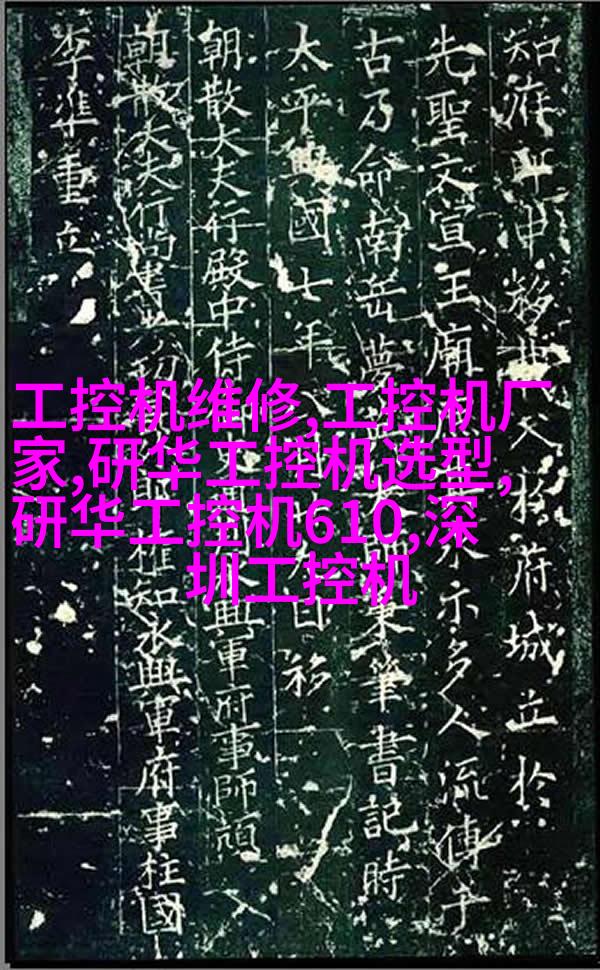 工控机维修,工控机厂
家,研华工控机选型,
研华工控机610,深
圳工控机
知府移府城立於
先聖文宣王廟示多人流傳于
古乃命南岳夢秉筆書記時
太平國七年八日移
朝散大夫行殿中侍興軍府事師頏
朝散大夫行尚書知永興軍府事柱國
李準重立